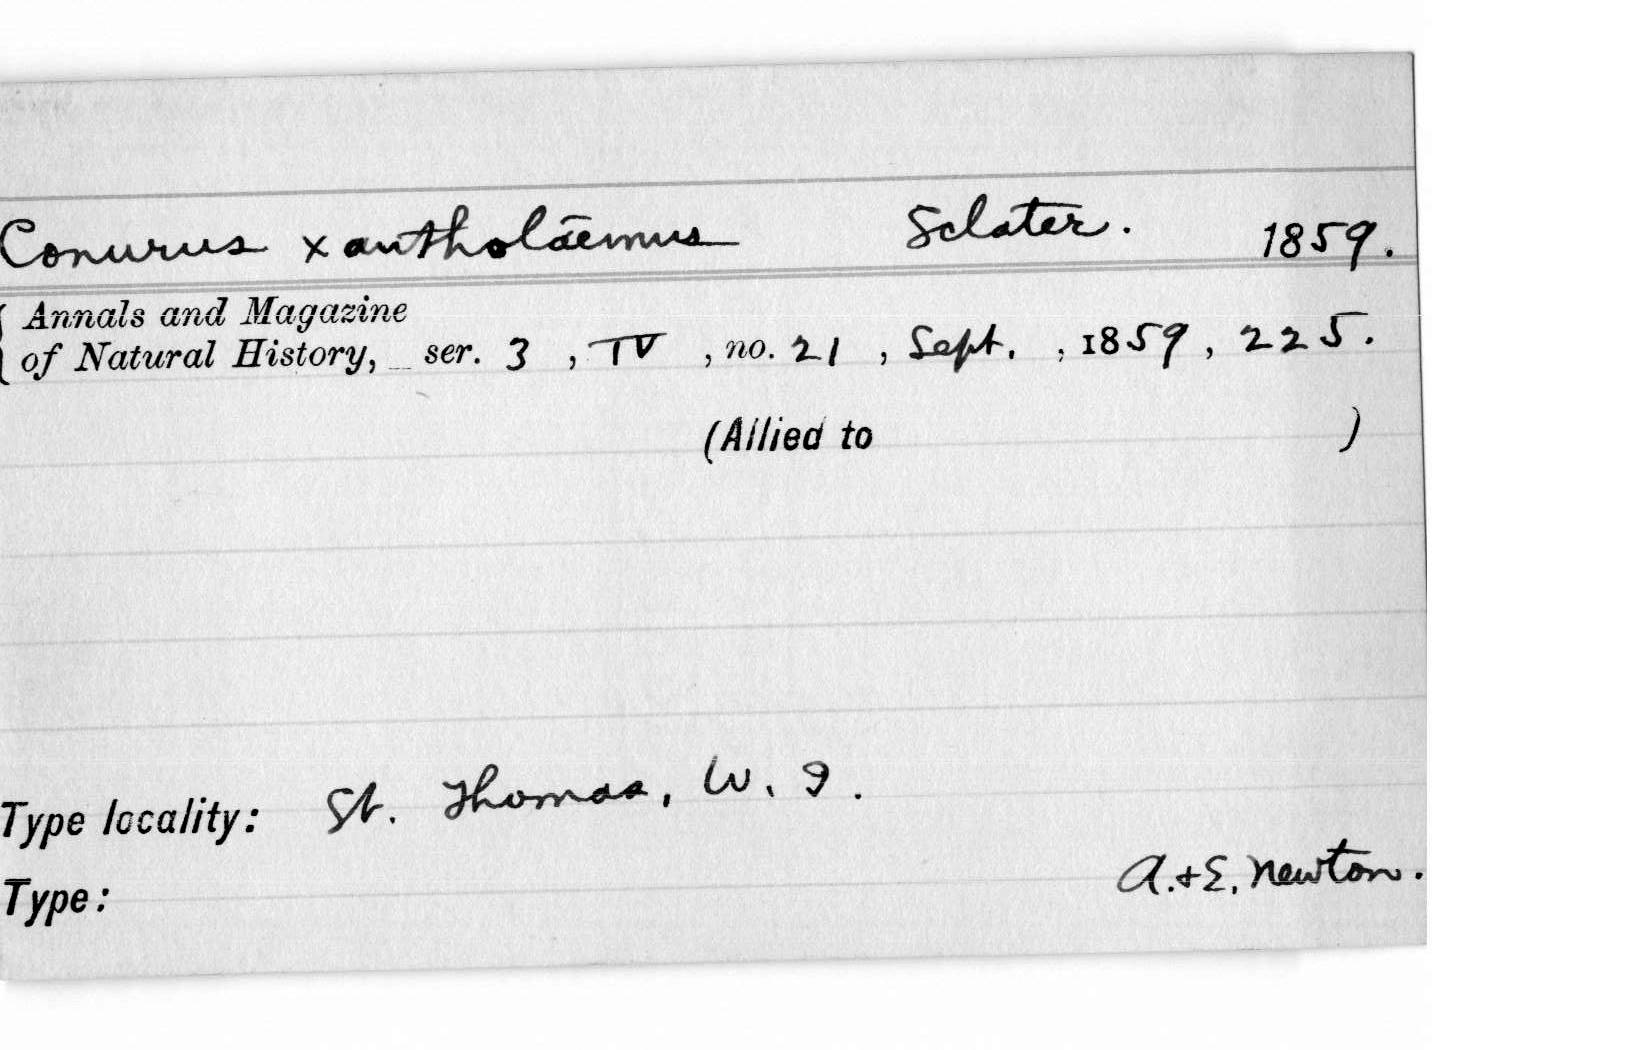 Conurus xantholaemus Sclater. 1859.
Annals and Magazine
of Natural History, ser. 3, IV, no. 21, Sept., 1859, 225.
(Allied to )
Type locality: St. Thomas, W. I.
A. + E. Newton.
Type: